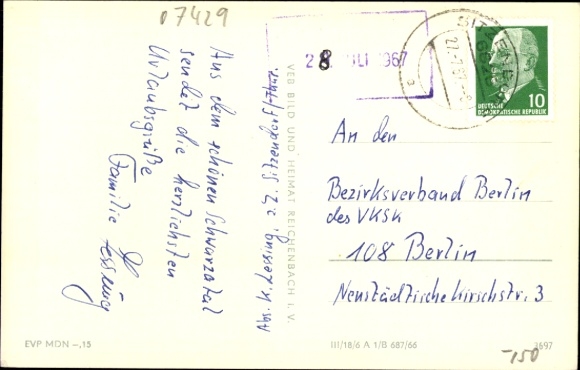 07429
Aus dem schönen Schwarzatal
sendet die herzlichsten
Urlaubsgrüße
Familie Lessing
Abs. K. Lessing, z. Z. Sitzendorf/Thür.
VEB BILD UND HEIMAT REICHENBACH I. V.
28. JULI 1967
DEUTSCHE
DEMOKRATISCHE REPUBLIK
10
An den
Bezirksverband Berlin
des VKSK
108 Berlin
Neustädtische Kirschstr. 3
EVP MDN –,15
III/18/6 A 1/B 687/66
-150